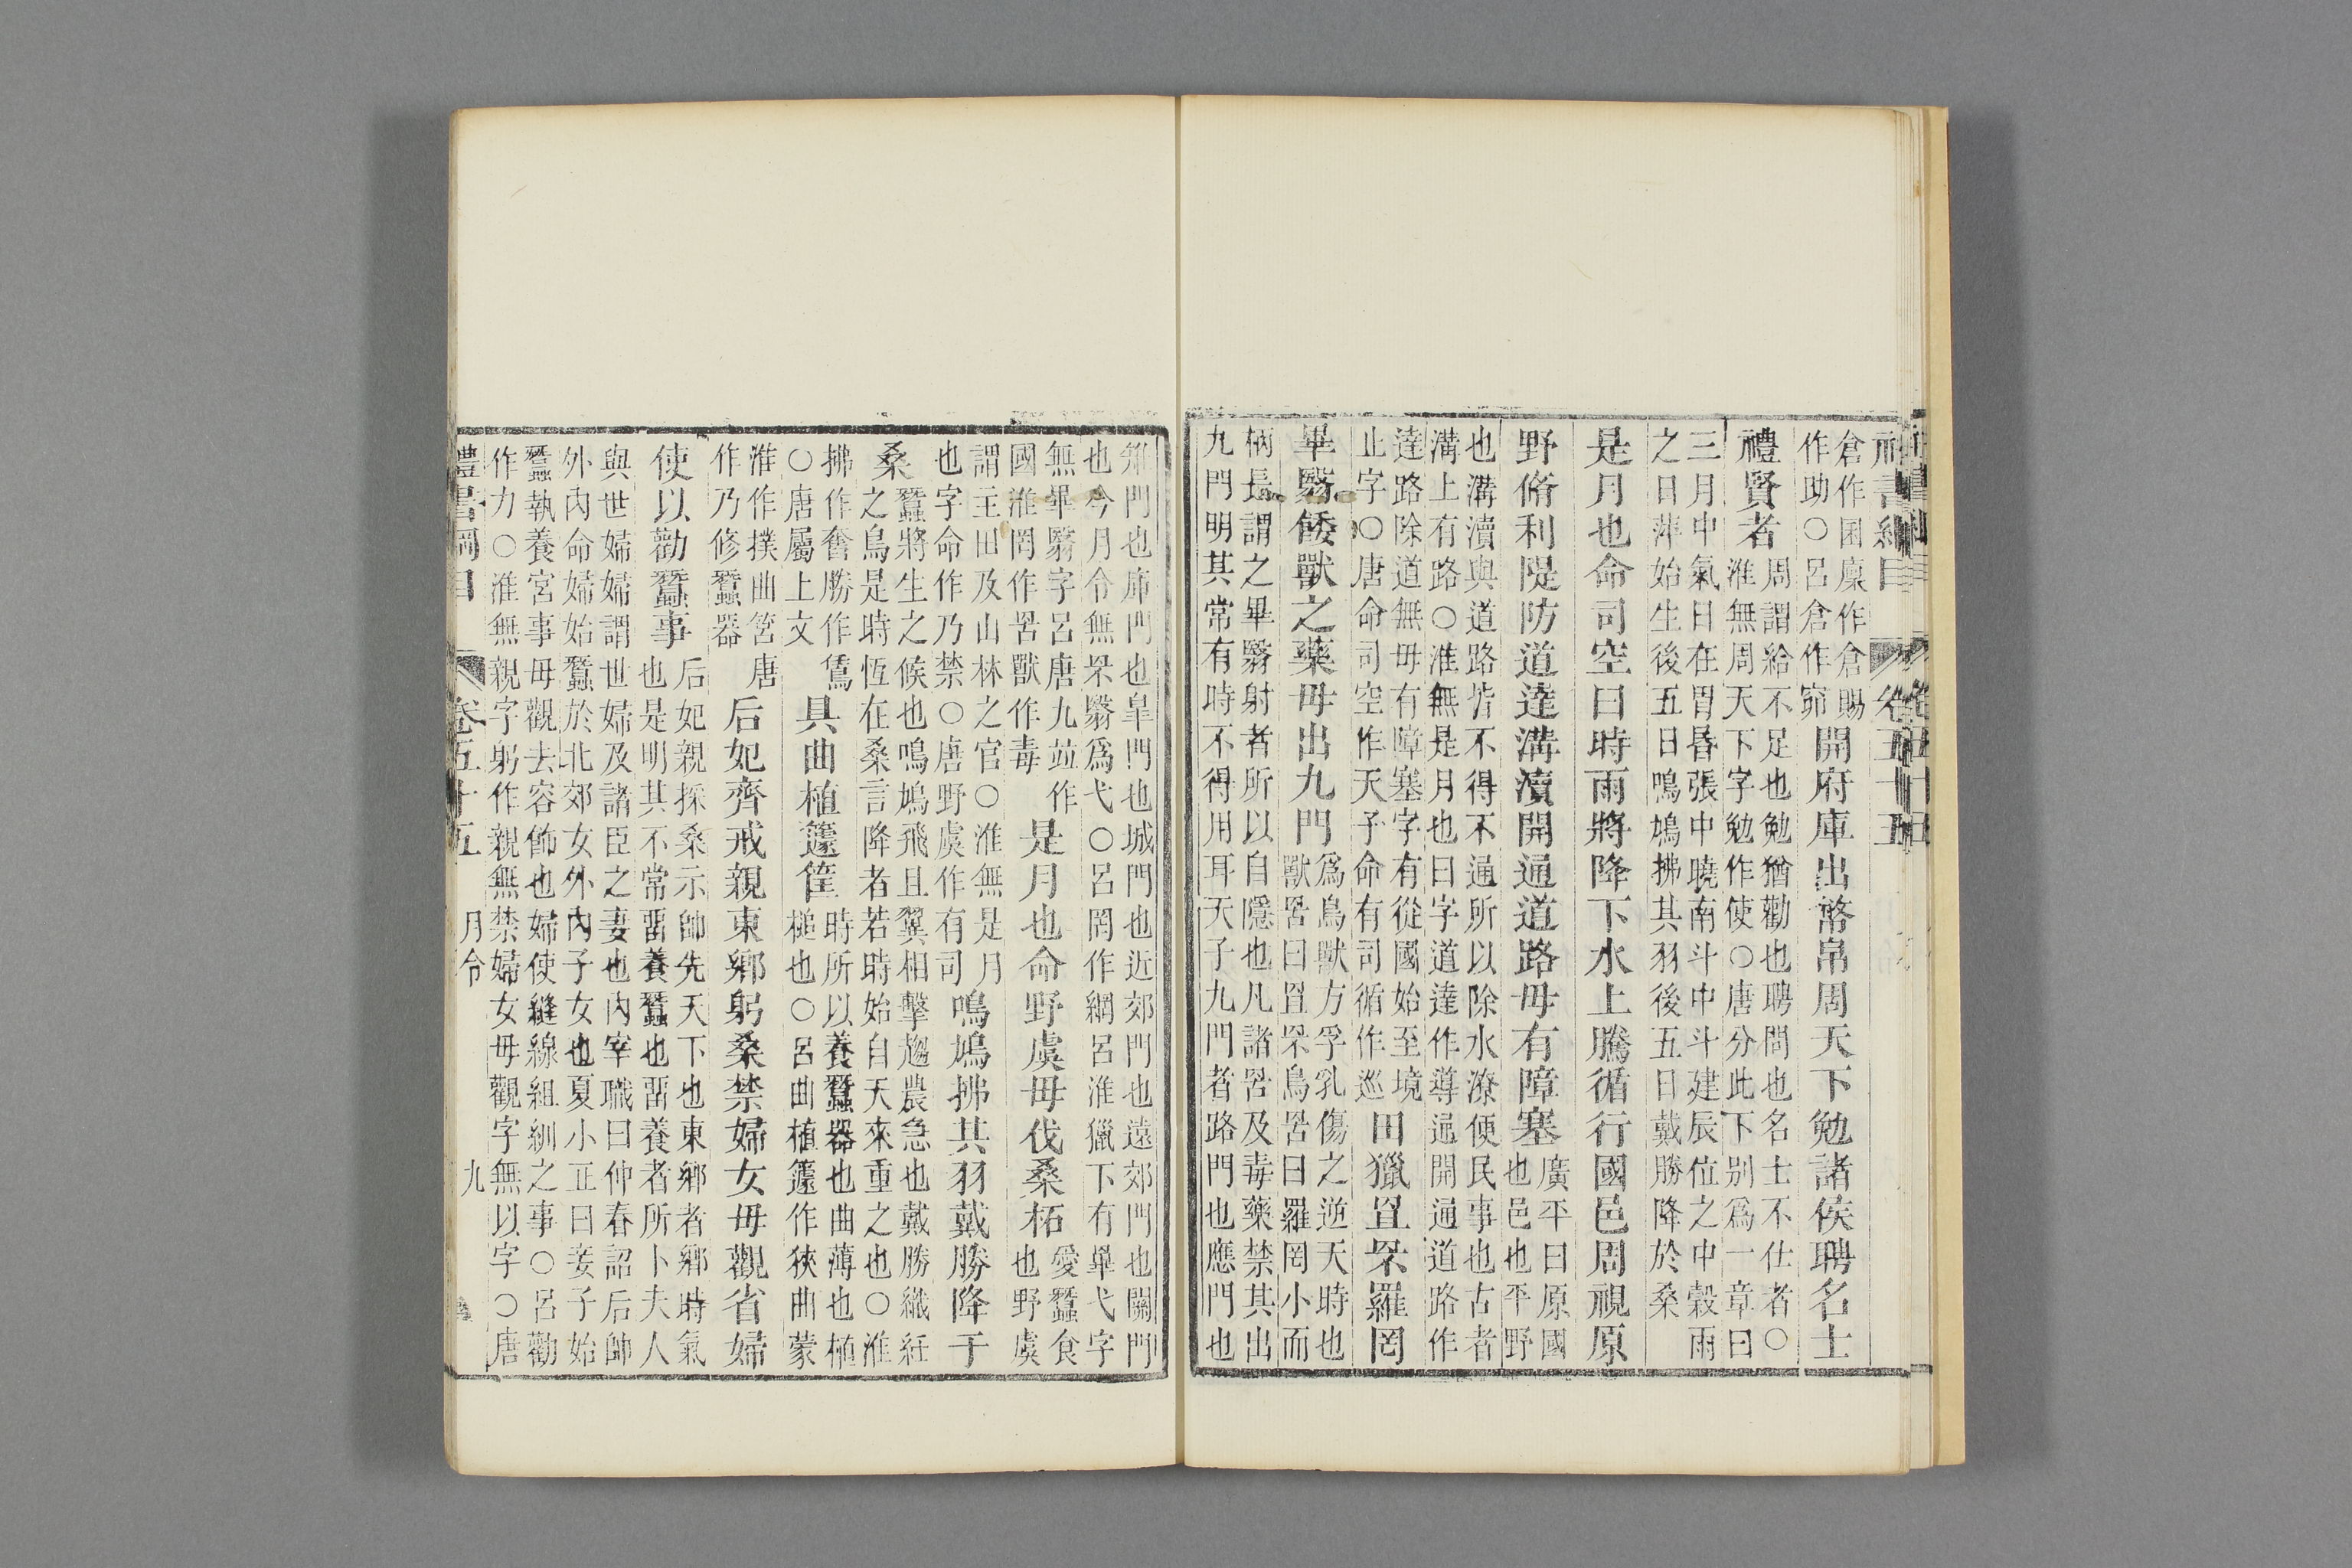 禮書綱目 卷五十五
倉作囷廩作倉賜
作助○呂倉作窌
開府庫出幣帛周天下勉諸侯聘名士
禮賢者
周謂給不足也勉猶勸也聘問也名士不仕者○
淮無周天下字勉作使○唐分此下別爲一章曰
三月中氣日在胃昏張中曉南斗中斗建辰位之中穀雨
之日萍始生後五日鳴鳩拂其羽後五日戴勝降於桑
是月也命司空曰時雨將降下水上騰循行國邑周視原
野脩利隄防道達溝瀆開通道路毋有障塞
廣平曰原國
也邑也平野
也溝瀆與道路皆不得不通所以除水潦便民事也古者
溝上有路○淮無是月也曰字道達作導逼開通道路作
達路除道無毋有障塞字有從國始至境
止字○唐命司空作天子命有司循作巡
田獵罝罘羅罔
畢翳餧獸之藥毋出九門
爲鳥獸方孚乳傷之逆天時也
獸罟曰罝罘鳥罟曰羅罔小而
柄長謂之畢翳射者所以自隱也凡諸罟及毒藥禁其出
九門明其常有時不得用耳天子九門者路門也應門也
雉門也庫門也皐門也城門也近郊門也遠郊門也關門
也今月令無罘翳爲弋○呂罔作網呂淮獵下有畢弋字
無畢翳字呂唐九竝作
國淮罔作罟獸作毒
是月也命野虞毋伐桑柘
愛蠶食
也野虞
謂主田及山林之官○淮無是月
也字命作乃禁○唐野虞作有司
鳴鳩拂其羽戴勝降于
桑
蠶將生之候也鳴鳩飛且翼相擊趨農急也戴勝織紝
之鳥是時恆在桑言降者若時始自天來重之也○淮
拂作奮勝作鵀
○唐屬上文
具曲植籧筐
時所以養蠶器也曲薄也植
槌也○呂曲植籧作挾曲蒙
淮作撲曲筥唐
作乃修蠶器
后妃齊戒親東鄉躬桑禁婦女毋觀省婦
使以勸蠶事
后妃親採桑示帥先天下也東鄉者鄉時氣
也是明其不常畱養蠶也畱養者所卜夫人
與世婦婦謂世婦及諸臣之妻也內宰職曰仲春詔后帥
外內命婦始蠶於北郊女外內子女也夏小正曰妾子始
蠶執養宮事毋觀去容飾也婦使縫線組紃之事○呂勸
作力○淮無親字躬作親無禁婦女毋觀字無以字○唐
禮書綱目 卷五十五 月令 九